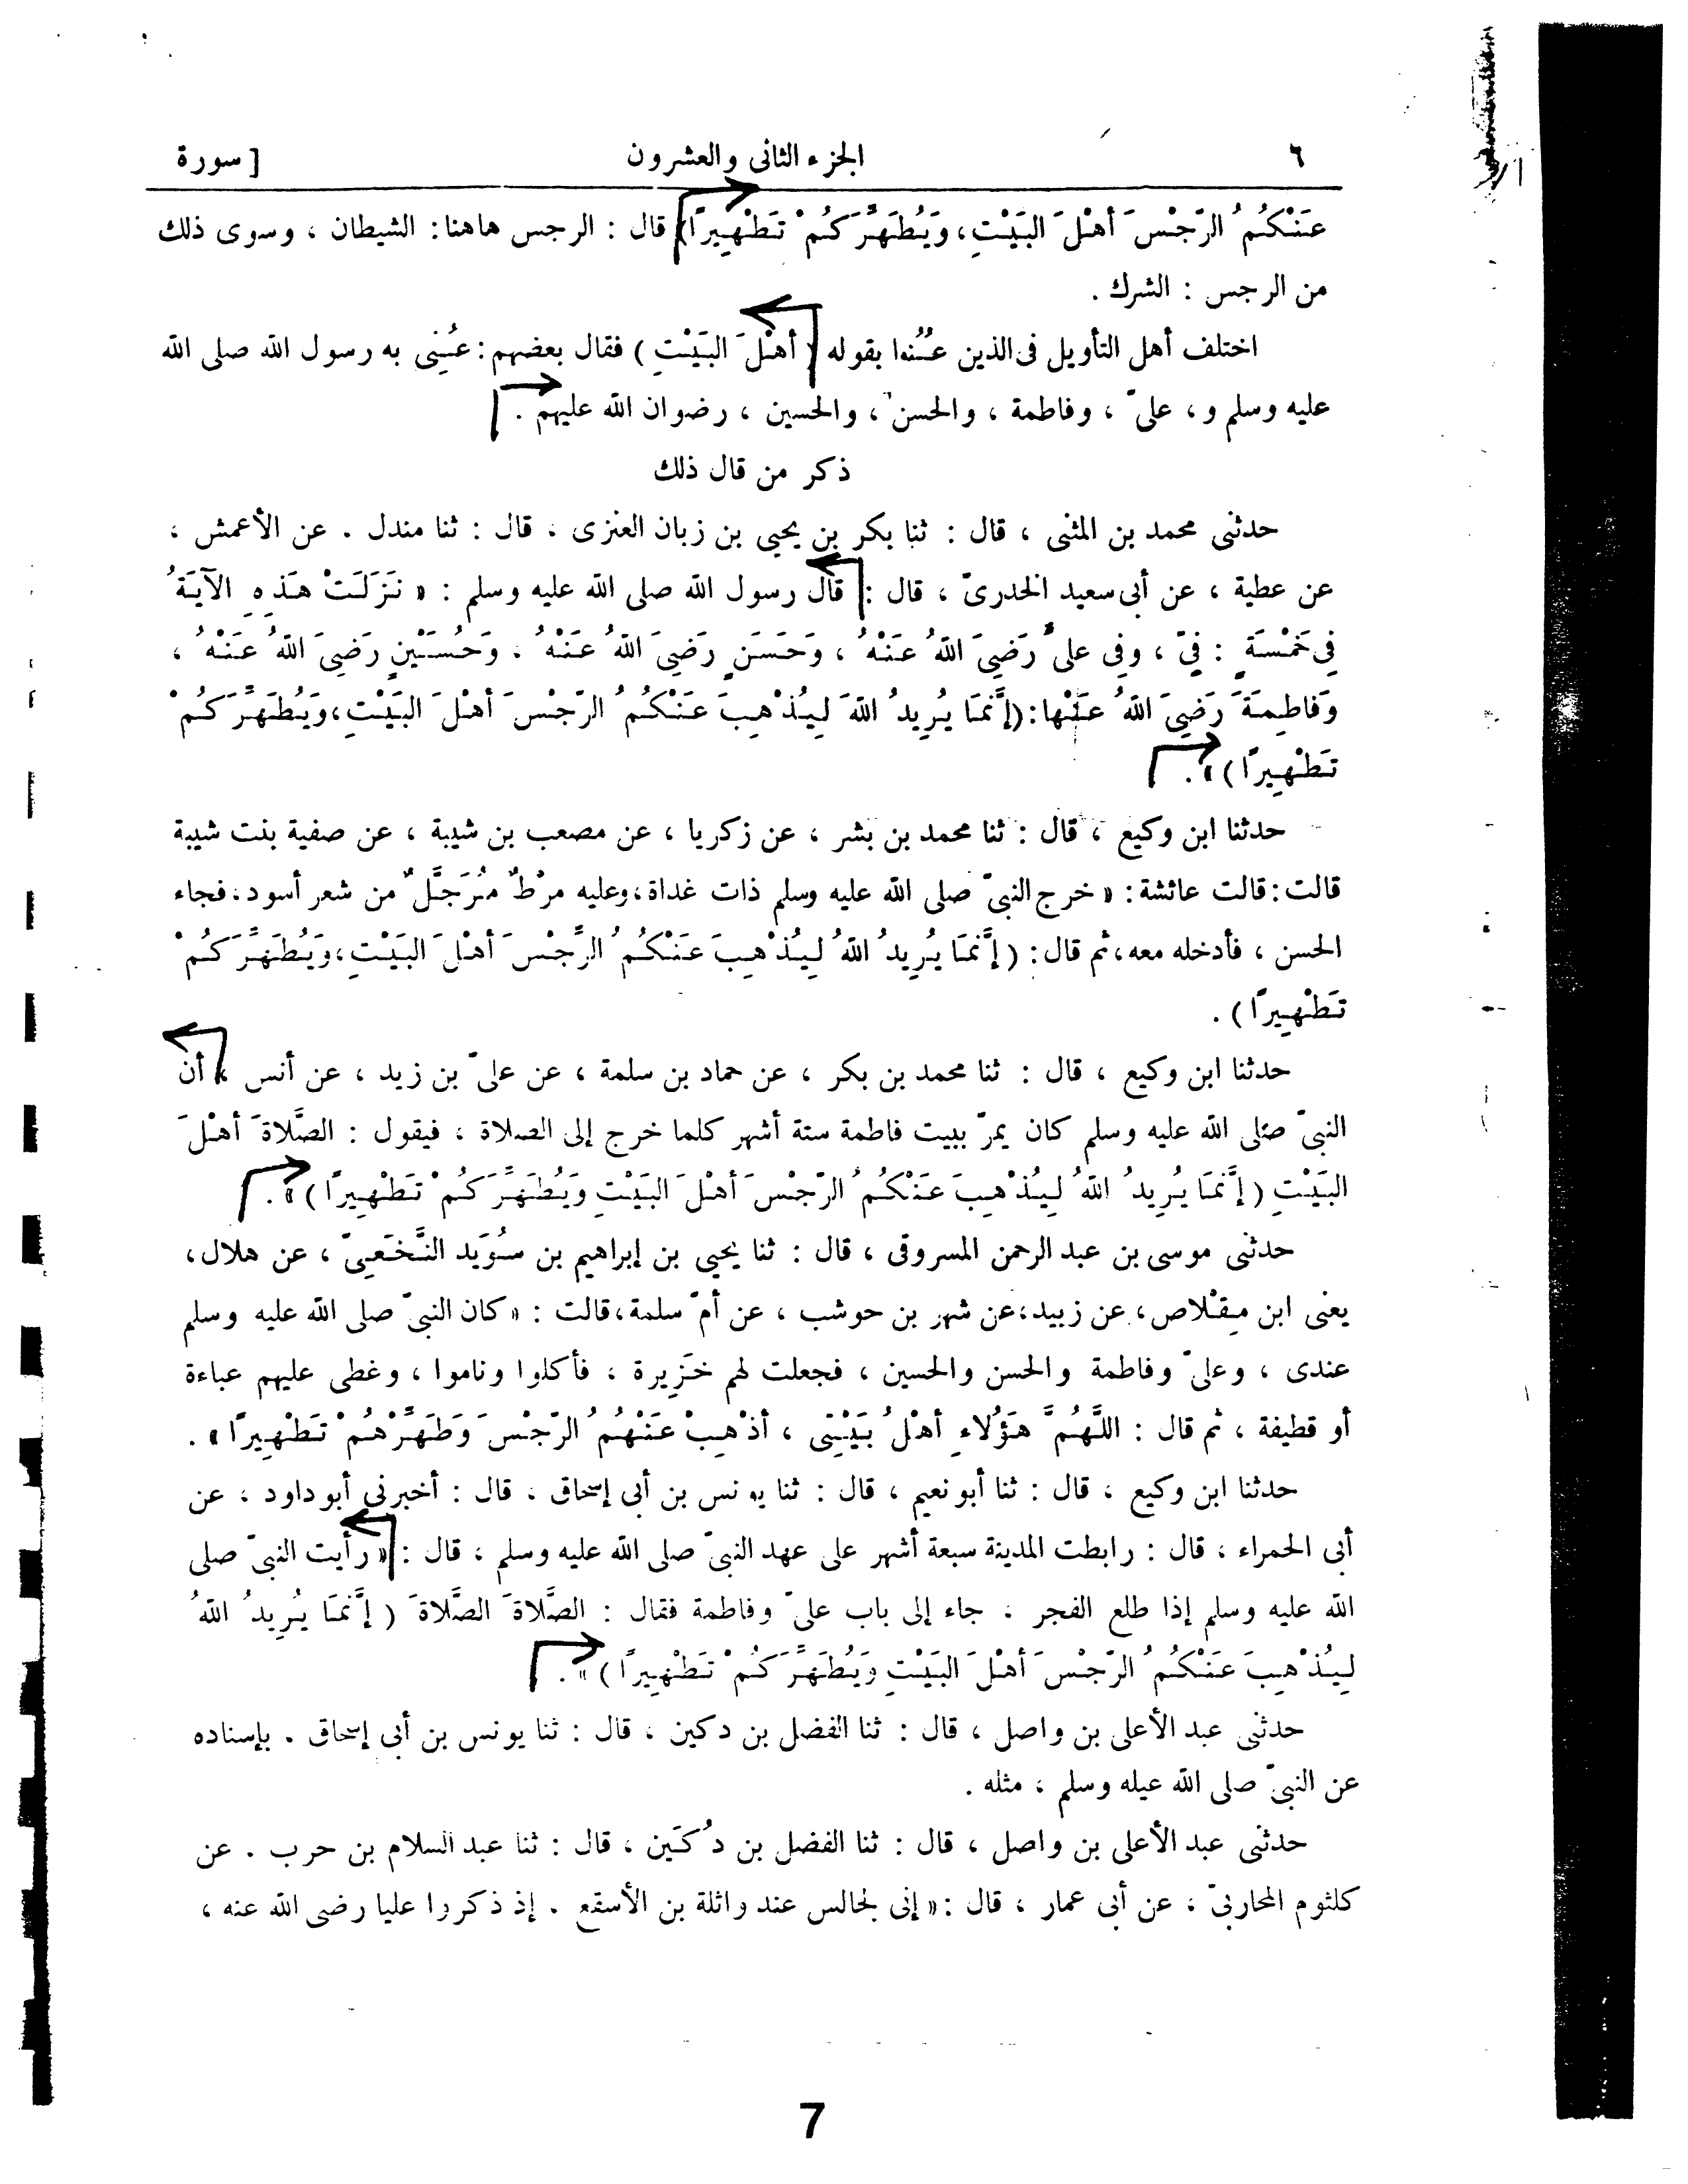 ٦ الجزء الثانى والعشرون [ سورة
عَنْكُمُ الرّجْسَ أهْلَ البَيْتِ، وَيُطَهِّرَكُمْ تَطْهِيرًا) قال : الرجس هاهنا : الشيطان ، وسوى ذلك
من الرجس : الشرك .
اختلف أهل التأويل فى الذين عُنُوا بقوله ( أهْلَ البَيْتِ ) فقال بعضهم : عُنِى به رسول الله صلى الله
عليه وسلم و ، علىّ ، وفاطمة ، والحسن ، والحسين ، رضوان الله عليهم .
ذكر من قال ذلك
حدثنى محمد بن المثنى ، قال : ثنا بكر بن يحيى بن زبان العنزى ، قال : ثنا مندل . عن الأعمش ،
عن عطية ، عن أبى سعيد الخدرىّ ، قال : قال رسول الله صلى الله عليه وسلم : « نَزَلَتْ هَذِهِ الآيَةُ
فِى خَمْسَةٍ : فِىَّ ، وفِى علىّ رَضِىَ اللهُ عَنْهُ ، وَحَسَنٍ رَضِىَ اللهُ عَنْهُ . وَحُسَيْنٍ رَضِىَ اللهُ عَنْهُ ،
وَفَاطِمَةَ رَضِىَ اللهُ عَنْها : (إَّنمَا يُرِيدُ اللهَ لِيُذْهِبَ عَنْكُمُ الرّجْسَ أهْلَ البَيْتِ، وَيُطَهِّرَكُمْ
تَطْهِيرًا) » .
حدثنا ابن وكيع ، قال : ثنا محمد بن بشر ، عن زكريا ، عن مصعب بن شيبة ، عن صفية بنت شيبة
قالت : قالت عائشة : « خرج النبىّ صلى الله عليه وسلم ذات غداة ، وعليه مرْطٌ مُرَجَّلٌ من شعر أسود ، فجاء
الحسن ، فأدخله معه ، ثم قال : ( إَّنمَا يُرِيدُ اللهُ لِيُذْهِبَ عَنْكُمُ الرّجْسَ أهْلَ البَيْتِ، وَيُطَهِّرَكُمْ
تَطْهِيرًا) .
حدثنا ابن وكيع ، قال : ثنا محمد بن بكر ، عن حماد بن سلمة ، عن علىّ بن زيد ، عن أنس ، أن
النبىّ صلى الله عليه وسلم كان يمرّ ببيت فاطمة ستة أشهر كلما خرج إلى الصلاة ، فيقول : الصَّلاةَ أهْلَ
البَيْتِ ( إَّنمَا يُرِيدُ اللهُ لِيُذْهِبَ عَنْكُمُ الرّجْسَ أهْلَ البَيْتِ وَيُطَهِّرَكُمْ تَطْهِيرًا ) » .
حدثنى موسى بن عبد الرحمن المسروقى ، قال : ثنا يحيى بن إبراهيم بن سُوَيد النَّخَعِىّ ، عن هلال ،
يعنى ابن مِقْلاص ، عن زبيد ، عن شهر بن حوشب ، عن أمّ سلمة ، قالت : « كان النبىّ صلى الله عليه وسلم
عندى ، وعلىّ وفاطمة والحسن والحسين ، فجعلت لهم خَزِيرة ، فأكلوا وناموا ، وغطى عليهم عباءة
أو قطيفة ، ثم قال : اللَّهُمَّ هَؤُلاءِ أهْلُ بَيْتِى ، أذْهِبْ عَنْهُمُ الرّجْسَ وَطَهِّرْهُمْ تَطْهِيرًا » .
حدثنا ابن وكيع ، قال : ثنا أبو نعيم ، قال : ثنا يونس بن أبى إسحاق ، قال : أخبرنى أبو داود ، عن
أبى الحمراء ، قال : رابطت المدينة سبعة أشهر على عهد النبىّ صلى الله عليه وسلم ، قال : « رأيت النبىّ صلى
الله عليه وسلم إذا طلع الفجر ، جاء إلى باب علىّ وفاطمة فقال : الصَّلاةَ الصَّلاةَ ( إَّنمَا يُرِيدُ اللهُ
لِيُذْهِبَ عَنْكُمُ الرّجْسَ أهْلَ البَيْتِ وَيُطَهِّرَكُمْ تَطْهِيرًا ) » .
حدثنى عبد الأعلى بن واصل ، قال : ثنا الفضل بن دكين ، قال : ثنا يونس بن أبى إسحاق . بإسناده
عن النبىّ صلى الله عيله وسلم ، مثله .
حدثنى عبد الأعلى بن واصل ، قال : ثنا الفضل بن دُكَين ، قال : ثنا عبد السلام بن حرب . عن
كلثوم المحاربىّ ، عن أبى عمار ، قال : « إنى لجالس عند واثلة بن الأسقع . إذ ذكروا عليا رضى الله عنه ،
7